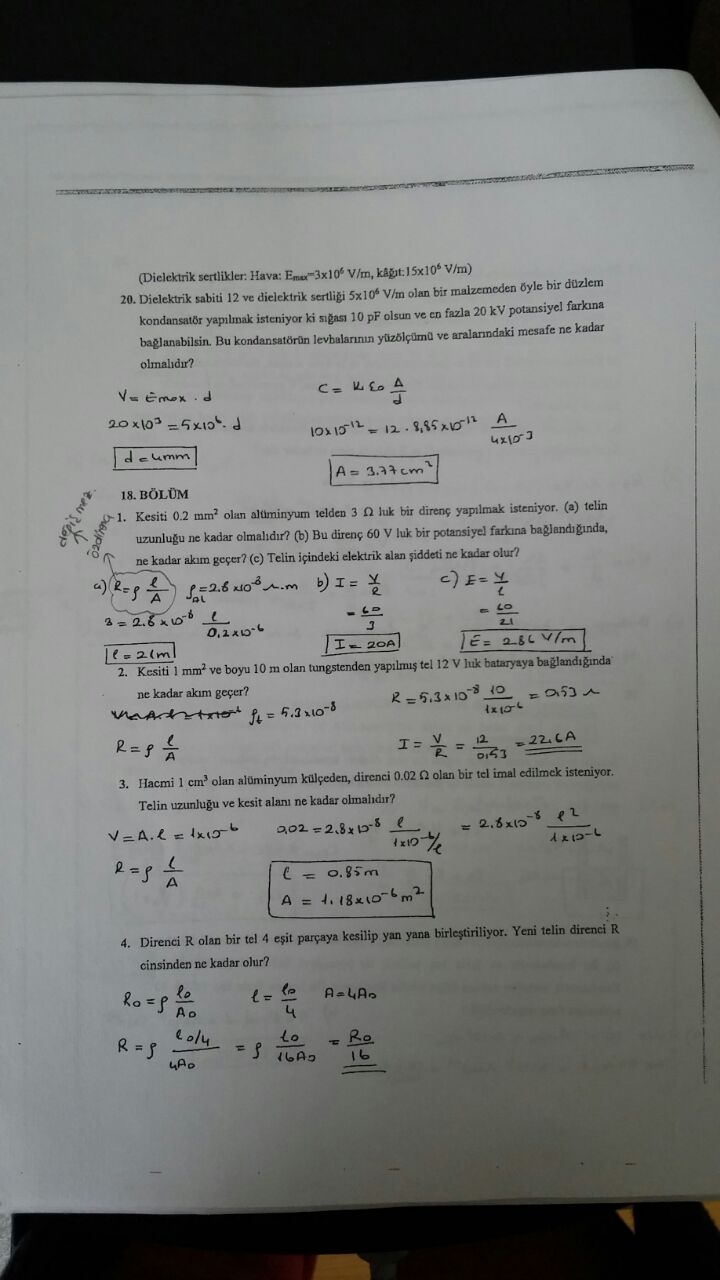 (Dielektrik sertlikler: Hava: Emax=3x10⁶ V/m, kâğıt:15x10⁶ V/m)
20. Dielektrik sabiti 12 ve dielektrik sertliği 5x10⁶ V/m olan bir malzemeden öyle bir düzlem
kondansatör yapılmak isteniyor ki sığası 10 pF olsun ve en fazla 20 kV potansiyel farkına
bağlanabilsin. Bu kondansatörün levhalarının yüzölçümü ve aralarındaki mesafe ne kadar
olmalıdır?
V = Emax . d
C = K ε₀ A/d
20x10³ = 5x10⁶. d
10x10⁻¹² = 12 . 8,85x10⁻¹² A/4x10⁻³
d = 4mm
A = 3.77 cm²
18. BÖLÜM
değişmez.
özdirenç
1. Kesiti 0.2 mm² olan alüminyum telden 3 Ω luk bir direnç yapılmak isteniyor. (a) telin
uzunluğu ne kadar olmalıdır? (b) Bu direnç 60 V luk bir potansiyel farkına bağlandığında,
ne kadar akım geçer? (c) Telin içindeki elektrik alan şiddeti ne kadar olur?
a) R = ρ l/A ρAl = 2.8 x10⁻⁸ Ω.m b) I = V/R c) E = V/l
3 = 2.8 x 10⁻⁸ l/0,2x10⁻⁶ = 60/3 = 60/21
l = 21m I = 20A E = 2.86 V/m
2. Kesiti 1 mm² ve boyu 10 m olan tungstenden yapılmış tel 12 V luk bataryaya bağlandığında
ne kadar akım geçer?
ρt = 5.3x10⁻⁸
R = 5,3x10⁻⁸ 10/1x10⁻⁶ = 0,53 Ω
R = ρ l/A
I = V/R = 12/0,53 = 22.6A
3. Hacmi 1 cm³ olan alüminyum külçeden, direnci 0.02 Ω olan bir tel imal edilmek isteniyor.
Telin uzunluğu ve kesit alanı ne kadar olmalıdır?
V = A.l = 1x10⁻⁶ 0,02 = 2.8x10⁻⁸ l/1x10⁻⁶/l = 2.8x10⁻⁸ l²/1x10⁻⁶
R = ρ l/A
l = 0.85m
A = 1.18x10⁻⁶ m²
4. Direnci R olan bir tel 4 eşit parçaya kesilip yan yana birleştiriliyor. Yeni telin direnci R
cinsinden ne kadar olur?
R₀ = ρ l₀/A₀ l = l₀/4 A = 4A₀
R = ρ l₀/4/4A₀ = ρ l₀/16A₀ = R₀/16